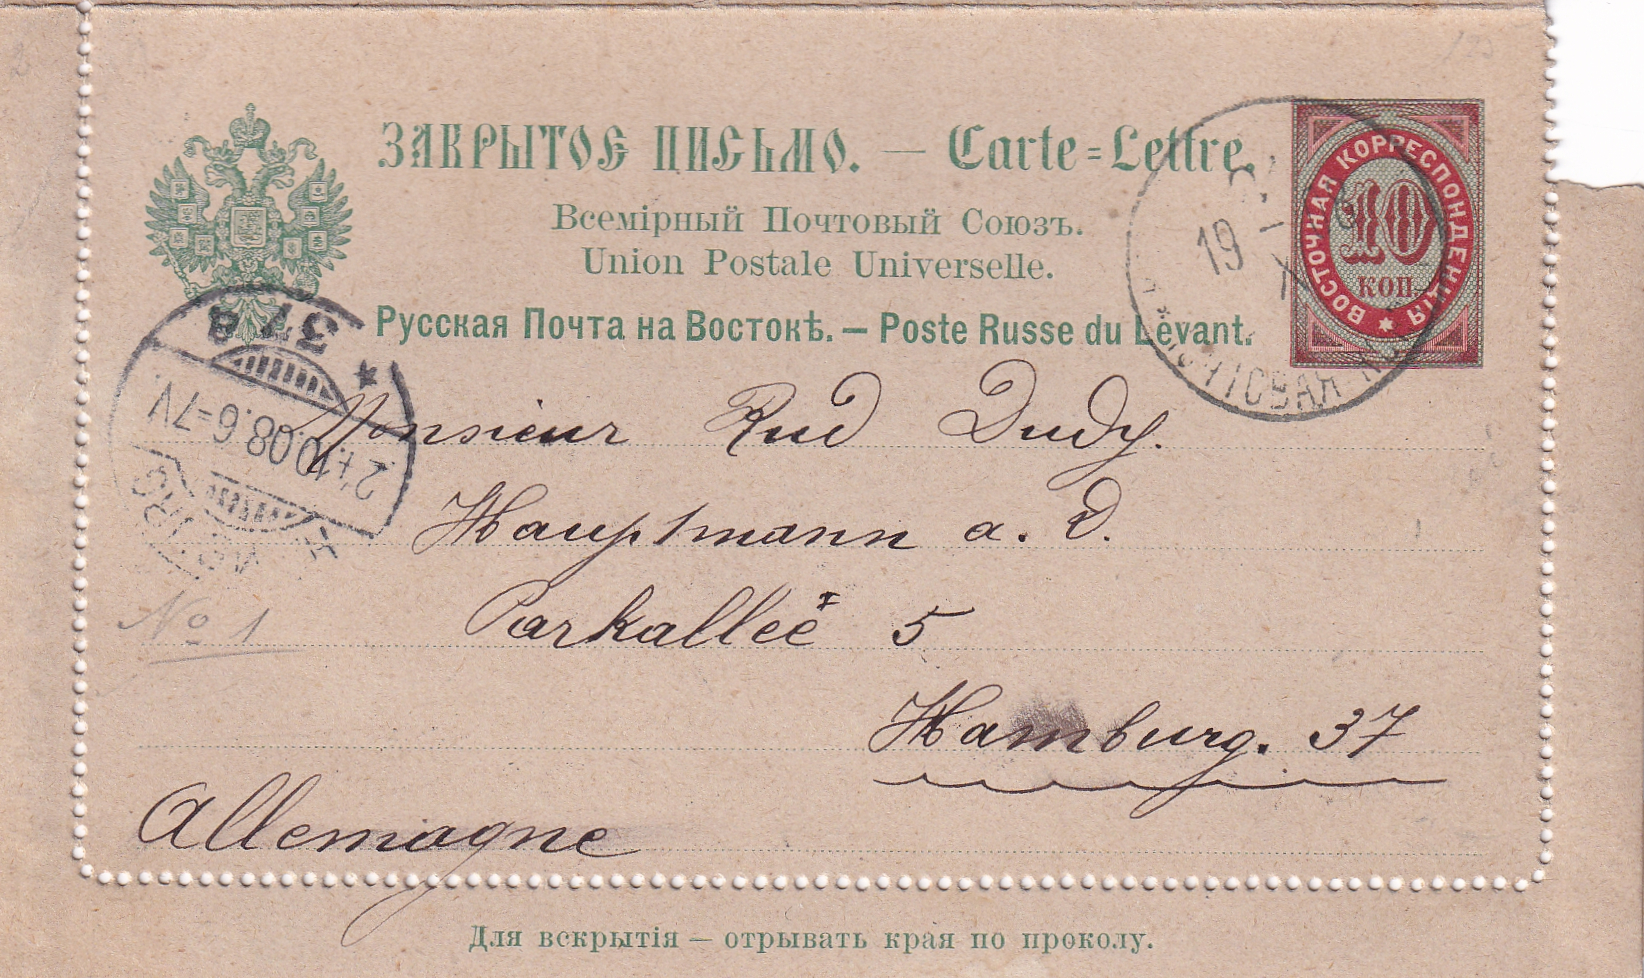 ЗАКРЫТОЕ ПИСЬМО. — Carte=Lettre.
Всемірный Почтовый Союзъ.
Union Postale Universelle.
Русская Почта на Востокѣ. — Poste Russe du Levant.
ВОСТОЧНАЯ КОРРЕСПОНДЕНЦІЯ
10
КОП.
19
X
37 a
21.10.08.6-7V.
Monsieur Rud Dudy.
Hauptmann a. D.
Parkalleé 5
No 1
Hamburg. 37
Allemagne
Для вскрытія — отрывать края по проколу.